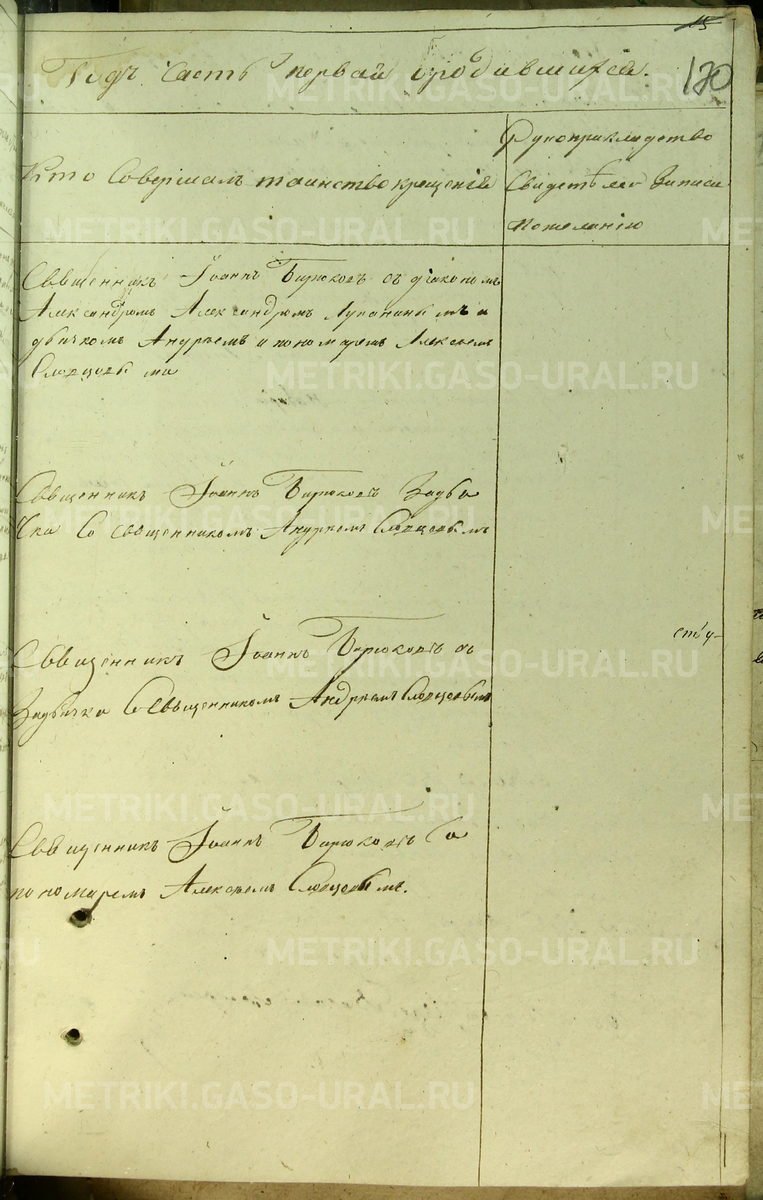 15
170
Годъ часть первая о родившихся.
Кто Совершалъ таинство крещенiя
Рукоприкладство
Свидетелей Записи
по желанiю
Священникъ Iоаннъ Бирюковъ съ дiакономъ
Александромъ Александромъ Луканиными и
дьячкомъ Андреемъ и пономаремъ Алексеемъ
Словцовы ми
Священникъ Iоаннъ Бирюковъ
Со священникомъ Андреемъ Словцовымъ
Священникъ Iоаннъ Бирюковъ
Со Священникомъ Андреемъ Словцовымъ
Священникъ Iоаннъ Бирюковъ Со
пономаремъ Алексеемъ Словцовымъ.
METRIKI.GASO-URAL.RU